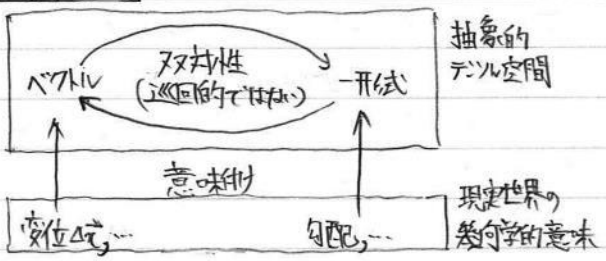 双対性
(巡回的ではない)
ベクトル
一形式
抽象的
テンソル空間
意味付け
変位Δx⃗,…
勾配,…
現実世界の
幾何学的意味